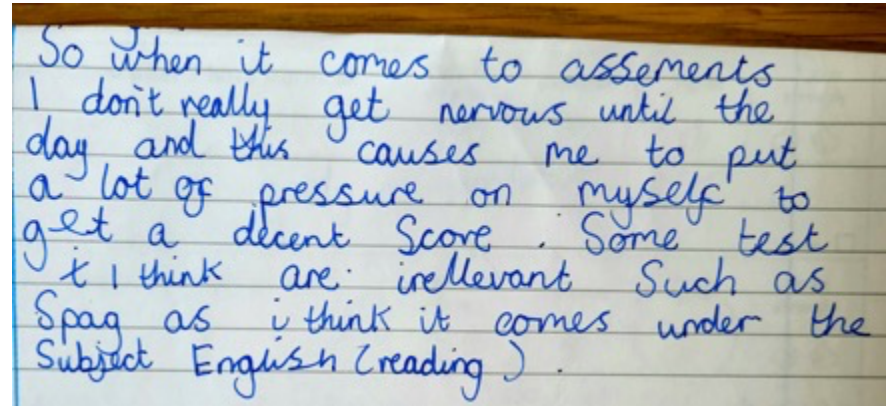 So when it comes to assements
I don't really get nervous until the
day and this causes me to put
a lot of pressure on myself to
get a decent Score. Some test
t I think are irellevant Such as
Spag as i think it comes under the
Subject English (reading).